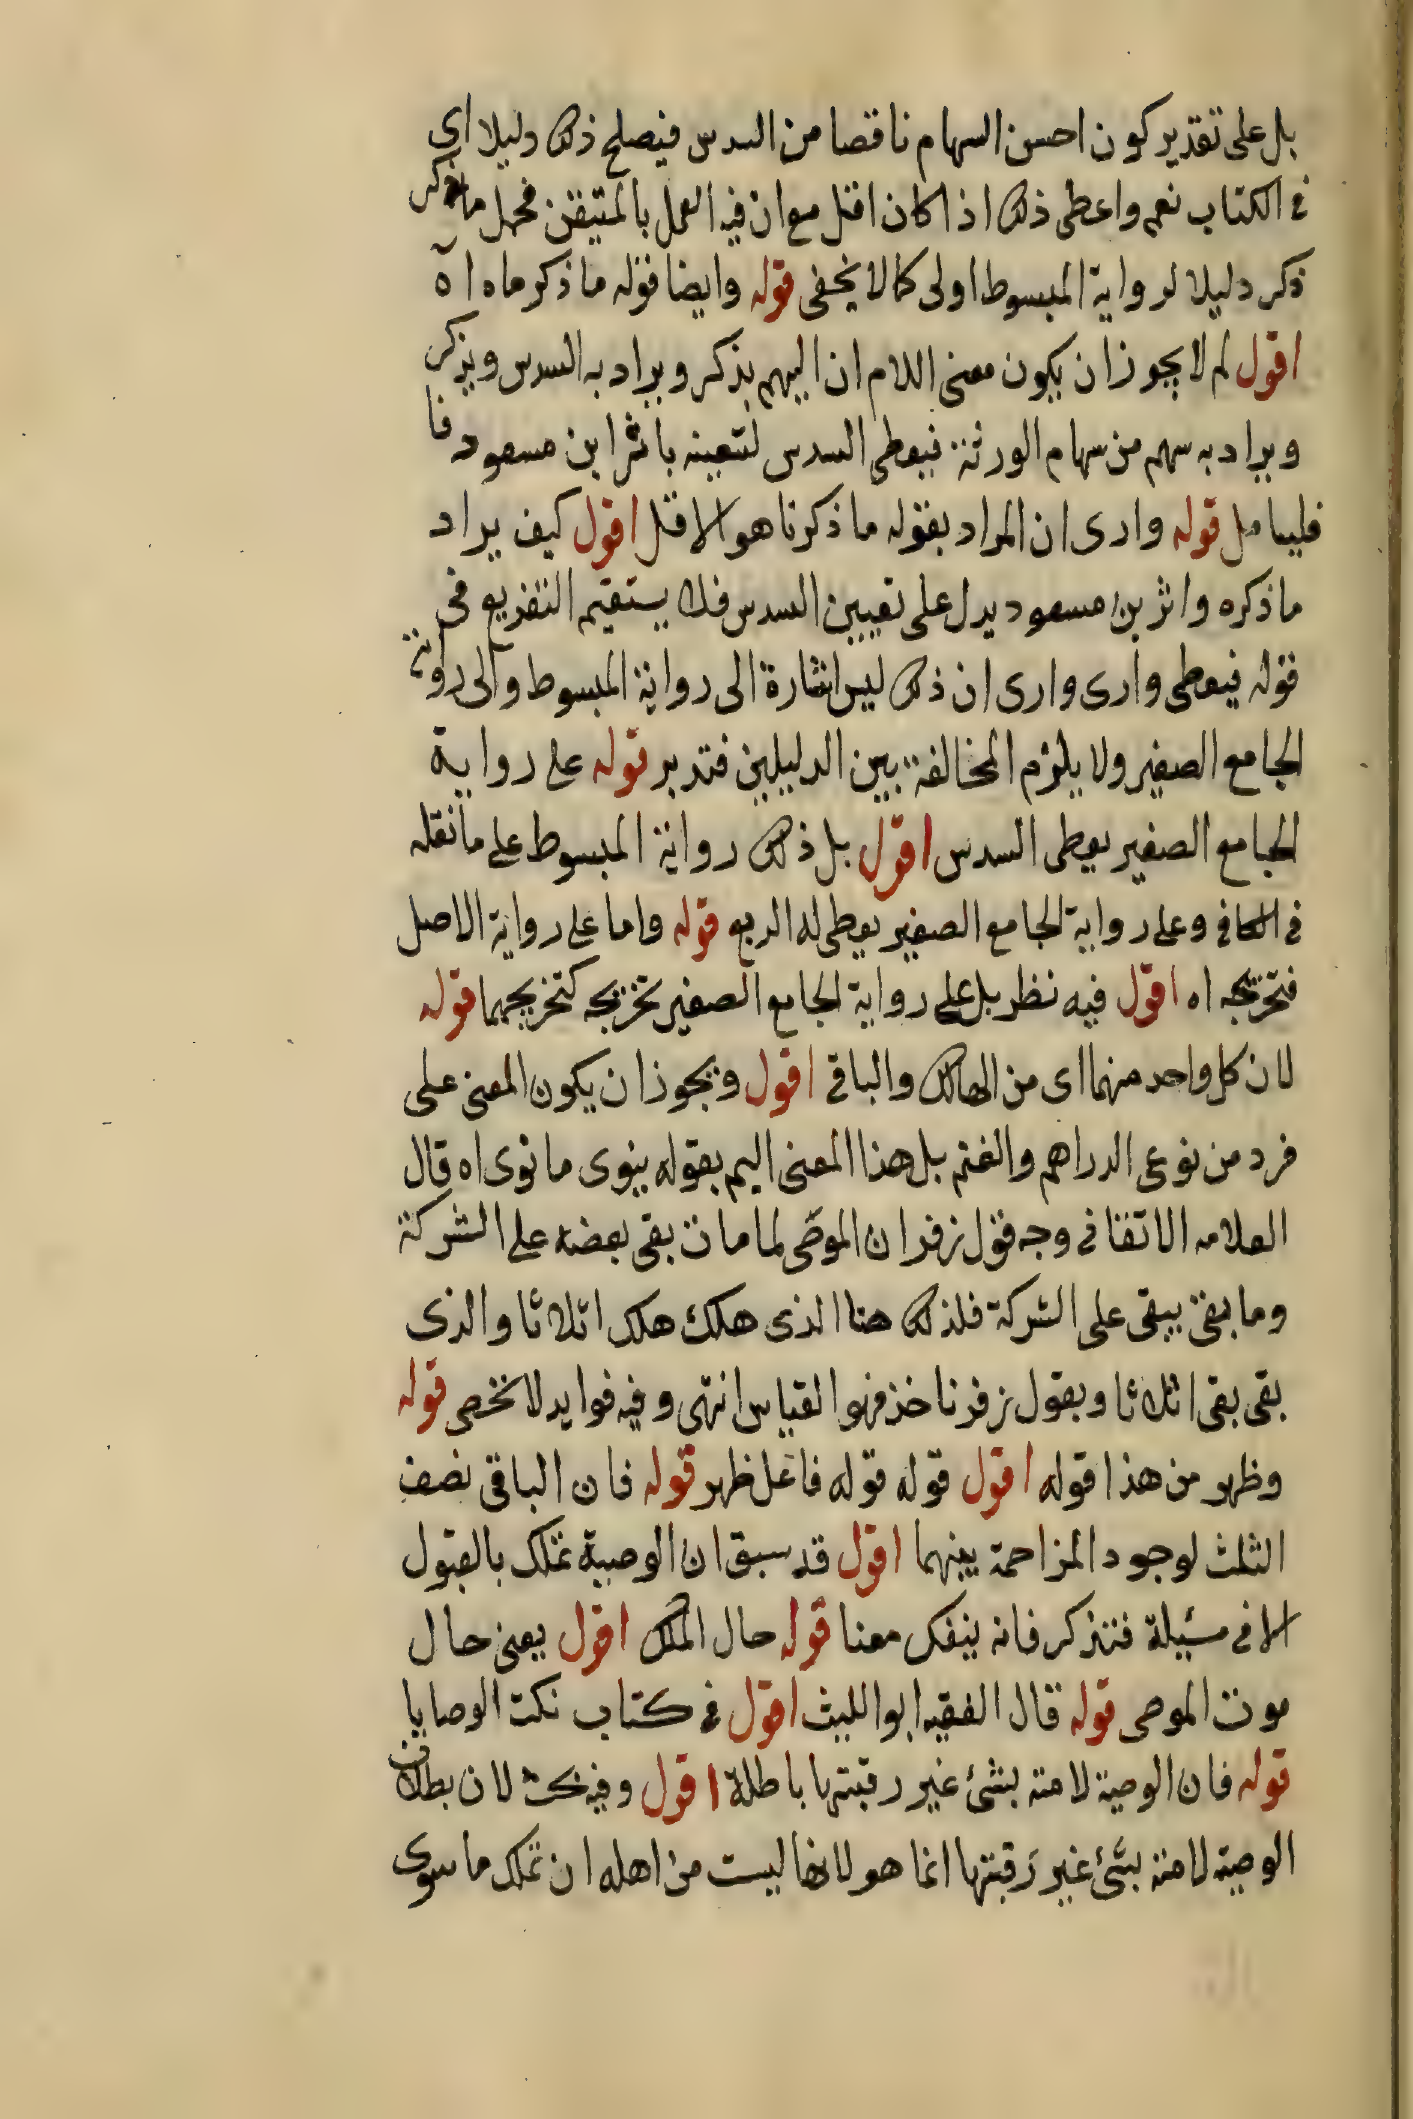 بل على تقدير كون احسن السهام ناقصا من السدس فيصلح ذلك دليلا اى
فى الكتاب نعم واعطى ذلك اذا كان اقل مع ان فيه العمل بالمتيقن فحمل ما ذكر
ذكر دليلا لرواية المبسوط اولى كما لا يخفى قوله وايضا قوله ما ذكر ماه اه
اقول لم لا يجوز ان يكون معنى اللام ان السهم يذكر ويراد به السدس ويذكر
ويراد به سهم من سهام الورثة فيعطى السدس لتعينه باثر ابن مسعود فا
فليتامل قوله وارى ان المراد بقوله ما ذكرنا هو الاقل اقول كيف يراد
ما ذكره واثر بن مسعود يدل على تعيين السدس فلا يستقيم التفريع فى
قوله فيعطى وارى وارى ان ذلك ليس اشارة الى رواية المبسوط والى رواية
الجامع الصغير ولا يلزم المخالفة بين الدليلين فتدبر قوله على رواية
الجامع الصغير يعطى السدس اقول بل ذلك رواية المبسوط على ما نقله
فى الكافى وعلى رواية الجامع الصغير يعطى له الربع قوله واما على رواية الاصل
فتخريجه اه اقول فيه نظر بل على رواية الجامع الصغير تخريجه كتخريجهما قوله
لان كل واحد منهما اى من الهالك والباقى اقول ويجوز ان يكون المعنى على
فرد من نوعى الدراهم والغنم بل هذا المعنى اليم بقوله ينوى ما نوى اه قال
العلامه الاتقانى فى وجه قول زفر ان الموصى لما مات بقى بعضه على الشركة
وما بقى يبقى على الشركة فلذلك هنا الذى هلك هلك اثلاثا والذى
بقى بقى اثلاثا وبقول زفر ناخذ فهو القياس انتهى وفيه فوايد لا تخصى قوله
وظهر من هذا قوله اقول قوله قوله فاعل ظهر قوله فان الباقى نصف
الثلث لوجود المزاحمة بينهما اقول قد سبق ان الوصية تملك بالقبول
الا فى مسئلة فتذكر فانه ينفك معنا قوله حال الملك اقول يعنى حال
موت الموصى قوله قال الفقيه ابو الليث اقول فى كتاب نكت الوصايا
قوله فان الوصية لامته بشئ غير رقبتها باطلة اقول وفيه بحث لان بطلان
الوصية لامته بشئ غير رقبتها انما هو لانها ليست من اهله ان تملك ما سوى